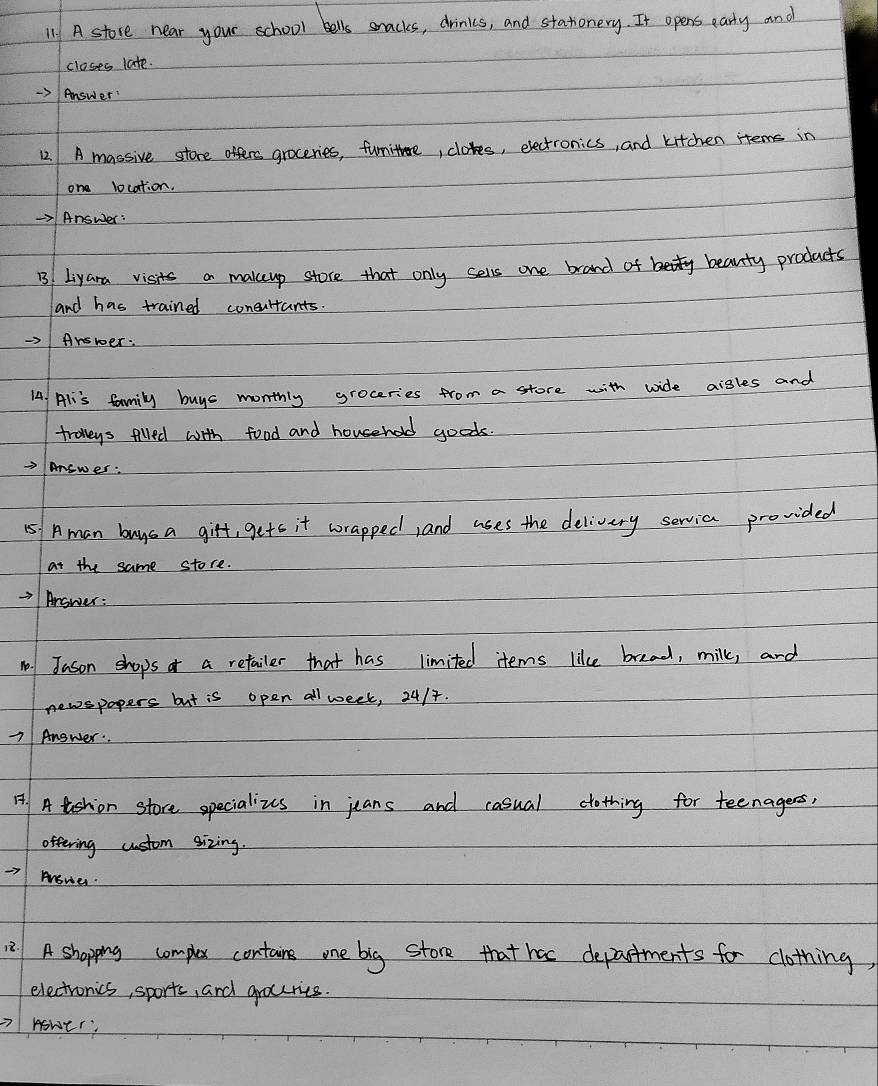 11. A store near your school bells snacks, drinks, and stationery. It opens early and
closes late.
-> Answer:
12. A massive store offers groceries, furniture, clothes, electronics, and kitchen items in
one location.
-> Answer:
13. Liyana visits a makeup store that only sells one brand of beauty products
and has trained consultants.
-> Answer:
14. Ali's family buys monthly groceries from a store with wide aisles and
trolleys filled with food and household goods.
-> Answer:
15. A man buys a gift, gets it wrapped, and uses the delivery service provided
at the same store.
-> Answer:
16. Jason shops at a retailer that has limited items like bread, milk, and
newspapers but is open all week, 24/7.
-> Answer:
17. A fashion store specializes in jeans and casual clothing for teenagers,
offering custom sizing.
-> Answer.
18. A shopping complex contains one big store that has departments for clothing,
electronics, sports, and groceries.
-> Answer: